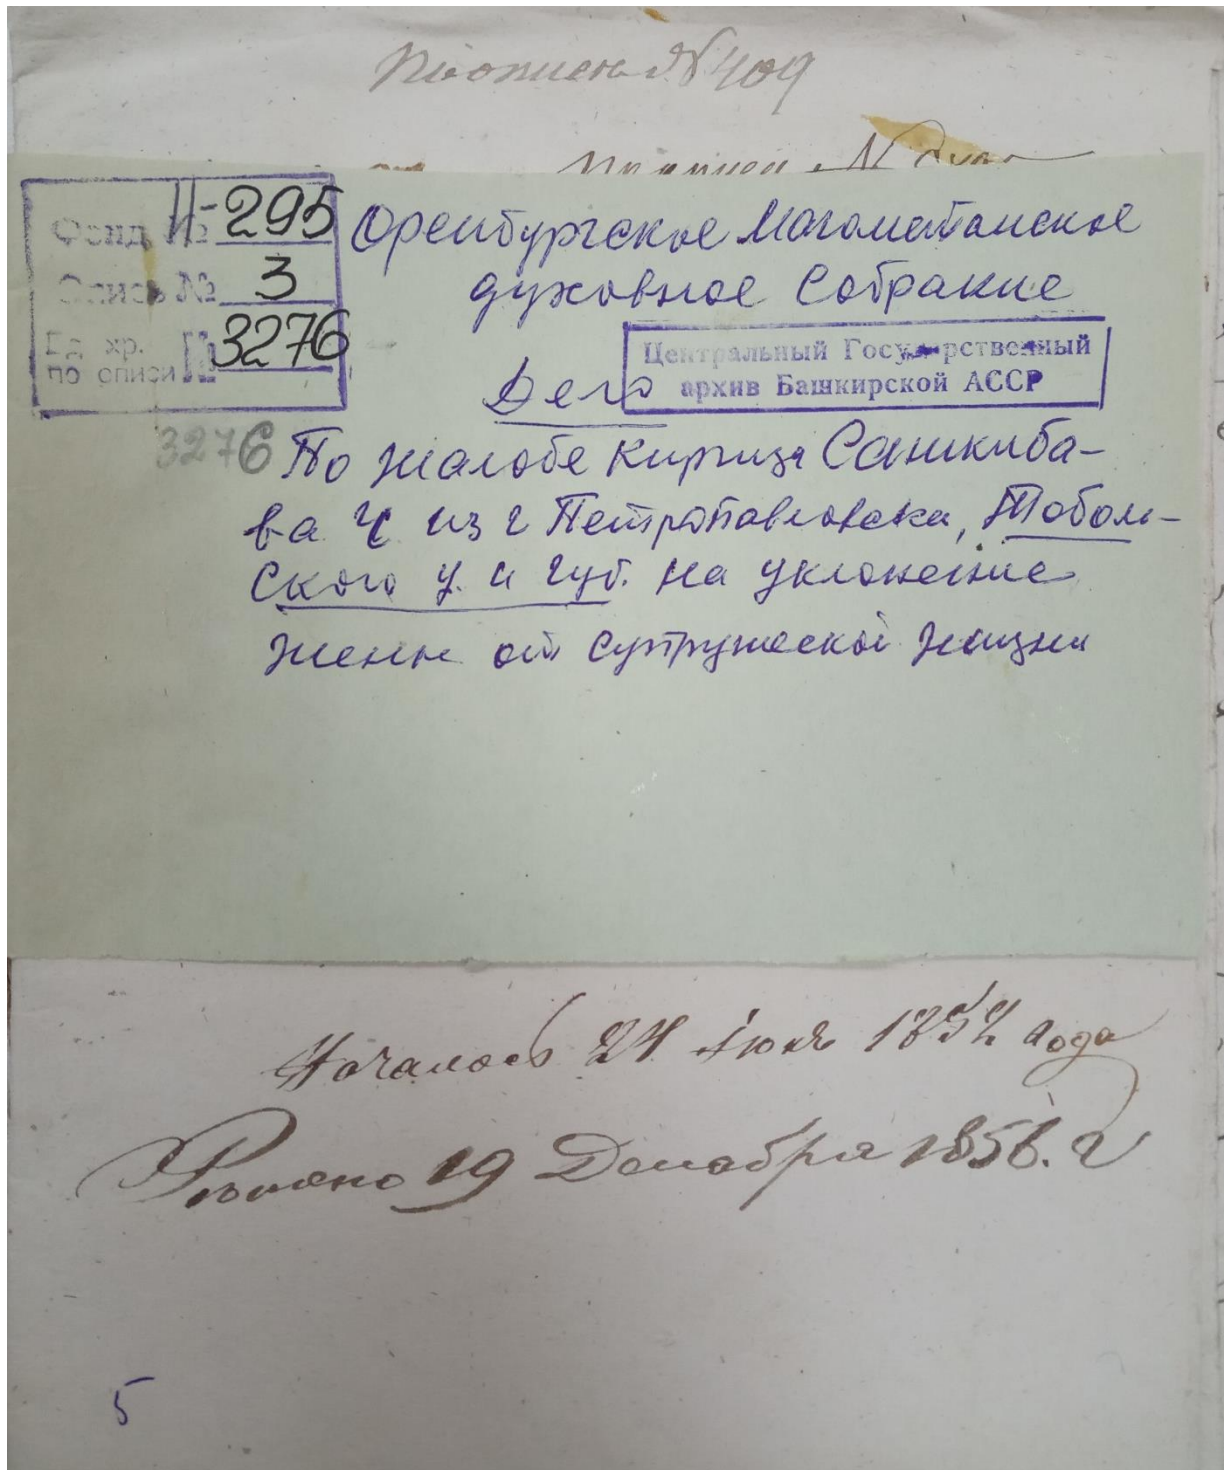 № 409
Фонд № И-295
Опись № 3
Ед. хр. по описи № 3276
Оренбургское Магометанское
духовное Собрание
Центральный Государственный
архив Башкирской АССР
Дело
3276 По жалобе киргиза Саникиба-
ва Ч из г Петропавловска, Тоболь-
ского у. и губ. на уклонение
жены от супружеской жизни
Началось 24 Июня 1852 года
Решено 19 Декабря 1856. г
5